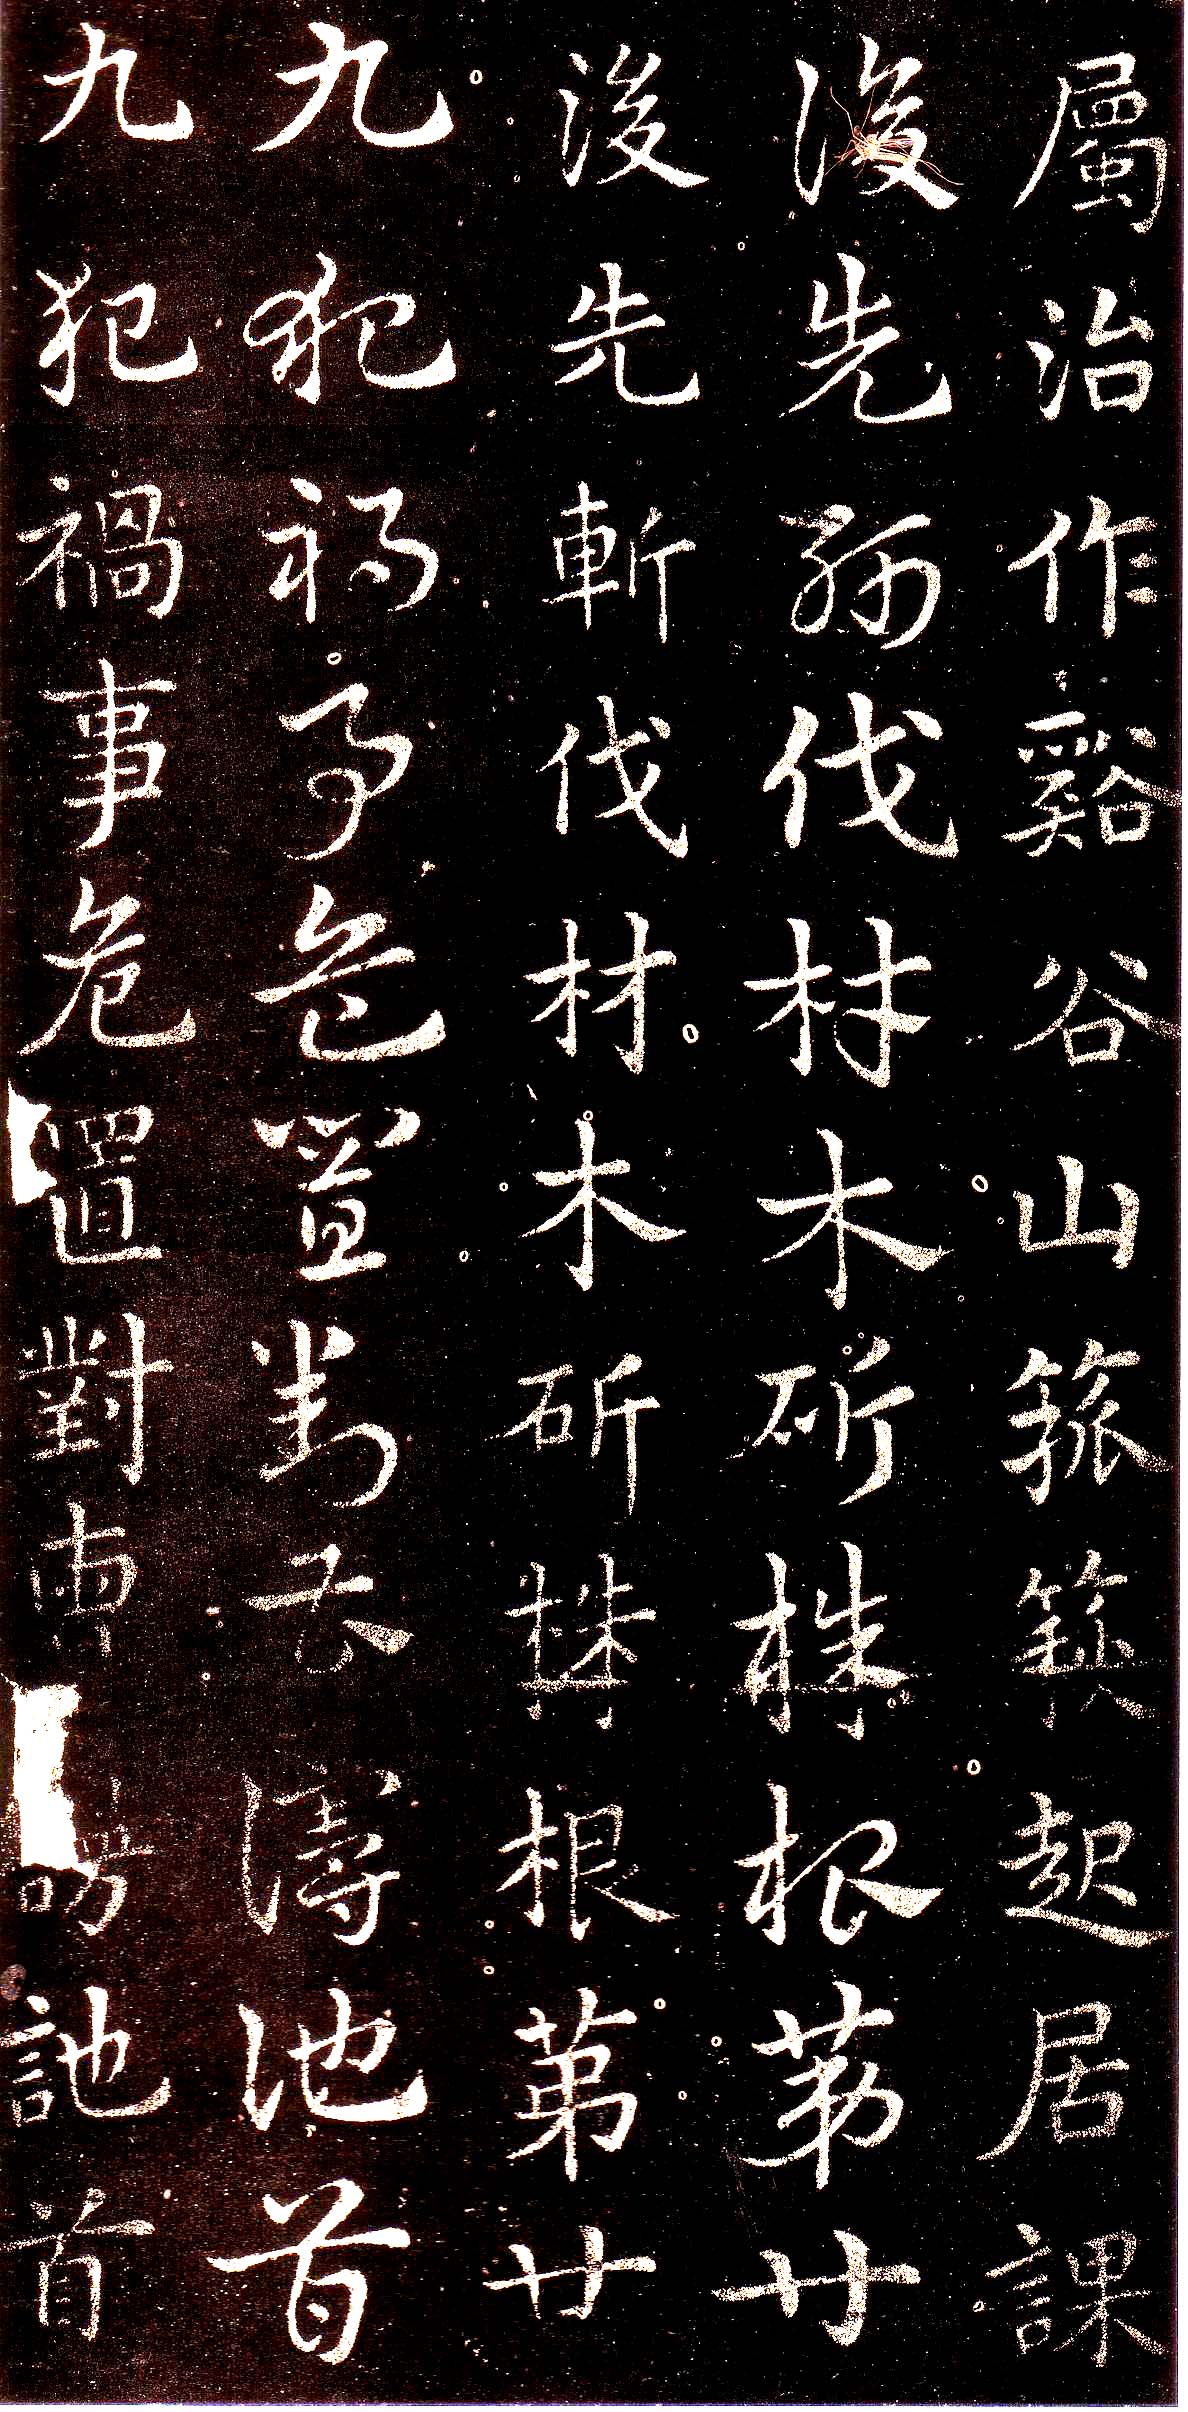 屬治作谿谷山箛簇起居課
後先斬伐材木斫株根第廿
後先斬伐材木斫株根第廿
九犯禍事危置對詑首
九犯禍事危置對曹訑首